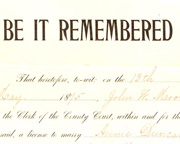 BE IT REMEMBERED
That heretofore, to-wit: on the 13th
May 1895 John W.
the Clerk of the County Court, within and for th
said, a license to marry Annie